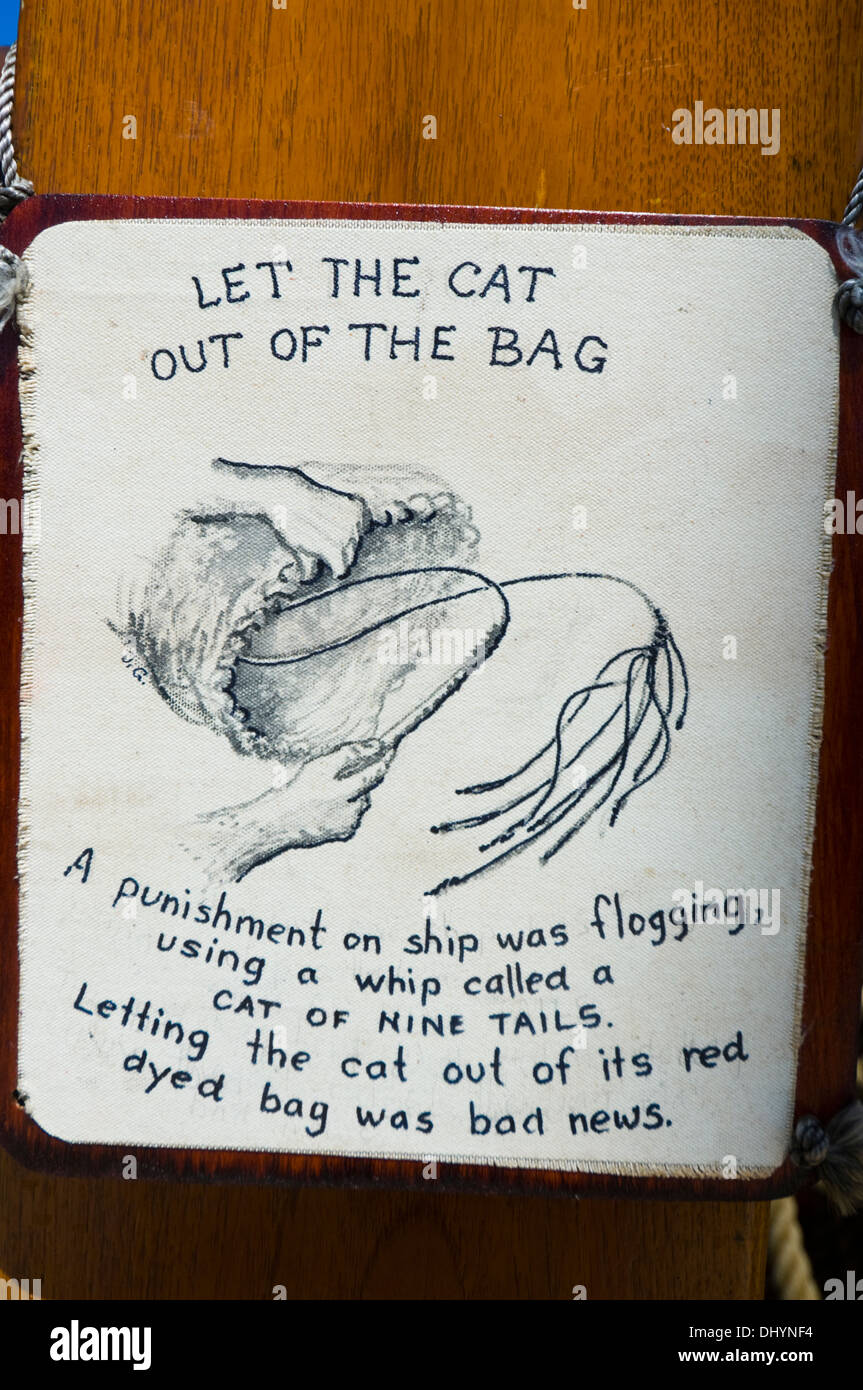 LET THE CAT
OUT OF THE BAG
J.G.
A punishment on ship was flogging,
using a whip called a
CAT OF NINE TAILS.
Letting the cat out of its red
dyed bag was bad news.
a alamy stock photo
DHYNF4
www.alamy.com